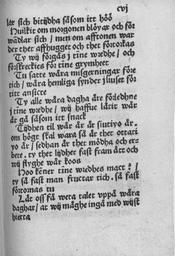 cvj
lär sich bittidha såsom itt höö
Huilkit om morgonen blöyar och för
wädlar sich / men om afftonen war
der thet affhugget och thet förtorkas
Ty wij förgås j tine wredhe / och
förskreckies för tine grymheet
Tu satte wåra misgerningar före
tich / wåra hemliga synder j liuset för
titt ansicte
Ty alle wåra dagha äre förledhne
j tine wredhe / wij haffue lidit wår
år gå såsom itt snack
Tijdhen til wår år är siutiyo år,
om högt skal wara så är thet ottati
yo år / sedhan är thet mödha och ers
bete. ty thet lijdher fast fram åt och
wij flyghe wår koos
Hoo kenner tine wredhes matt? /
ty så fast man fructar tich. så fast
förtörnas tu
Lär oss så wera talet uppå wåra
daghar / at wij måghe ingå med wijst
hierta